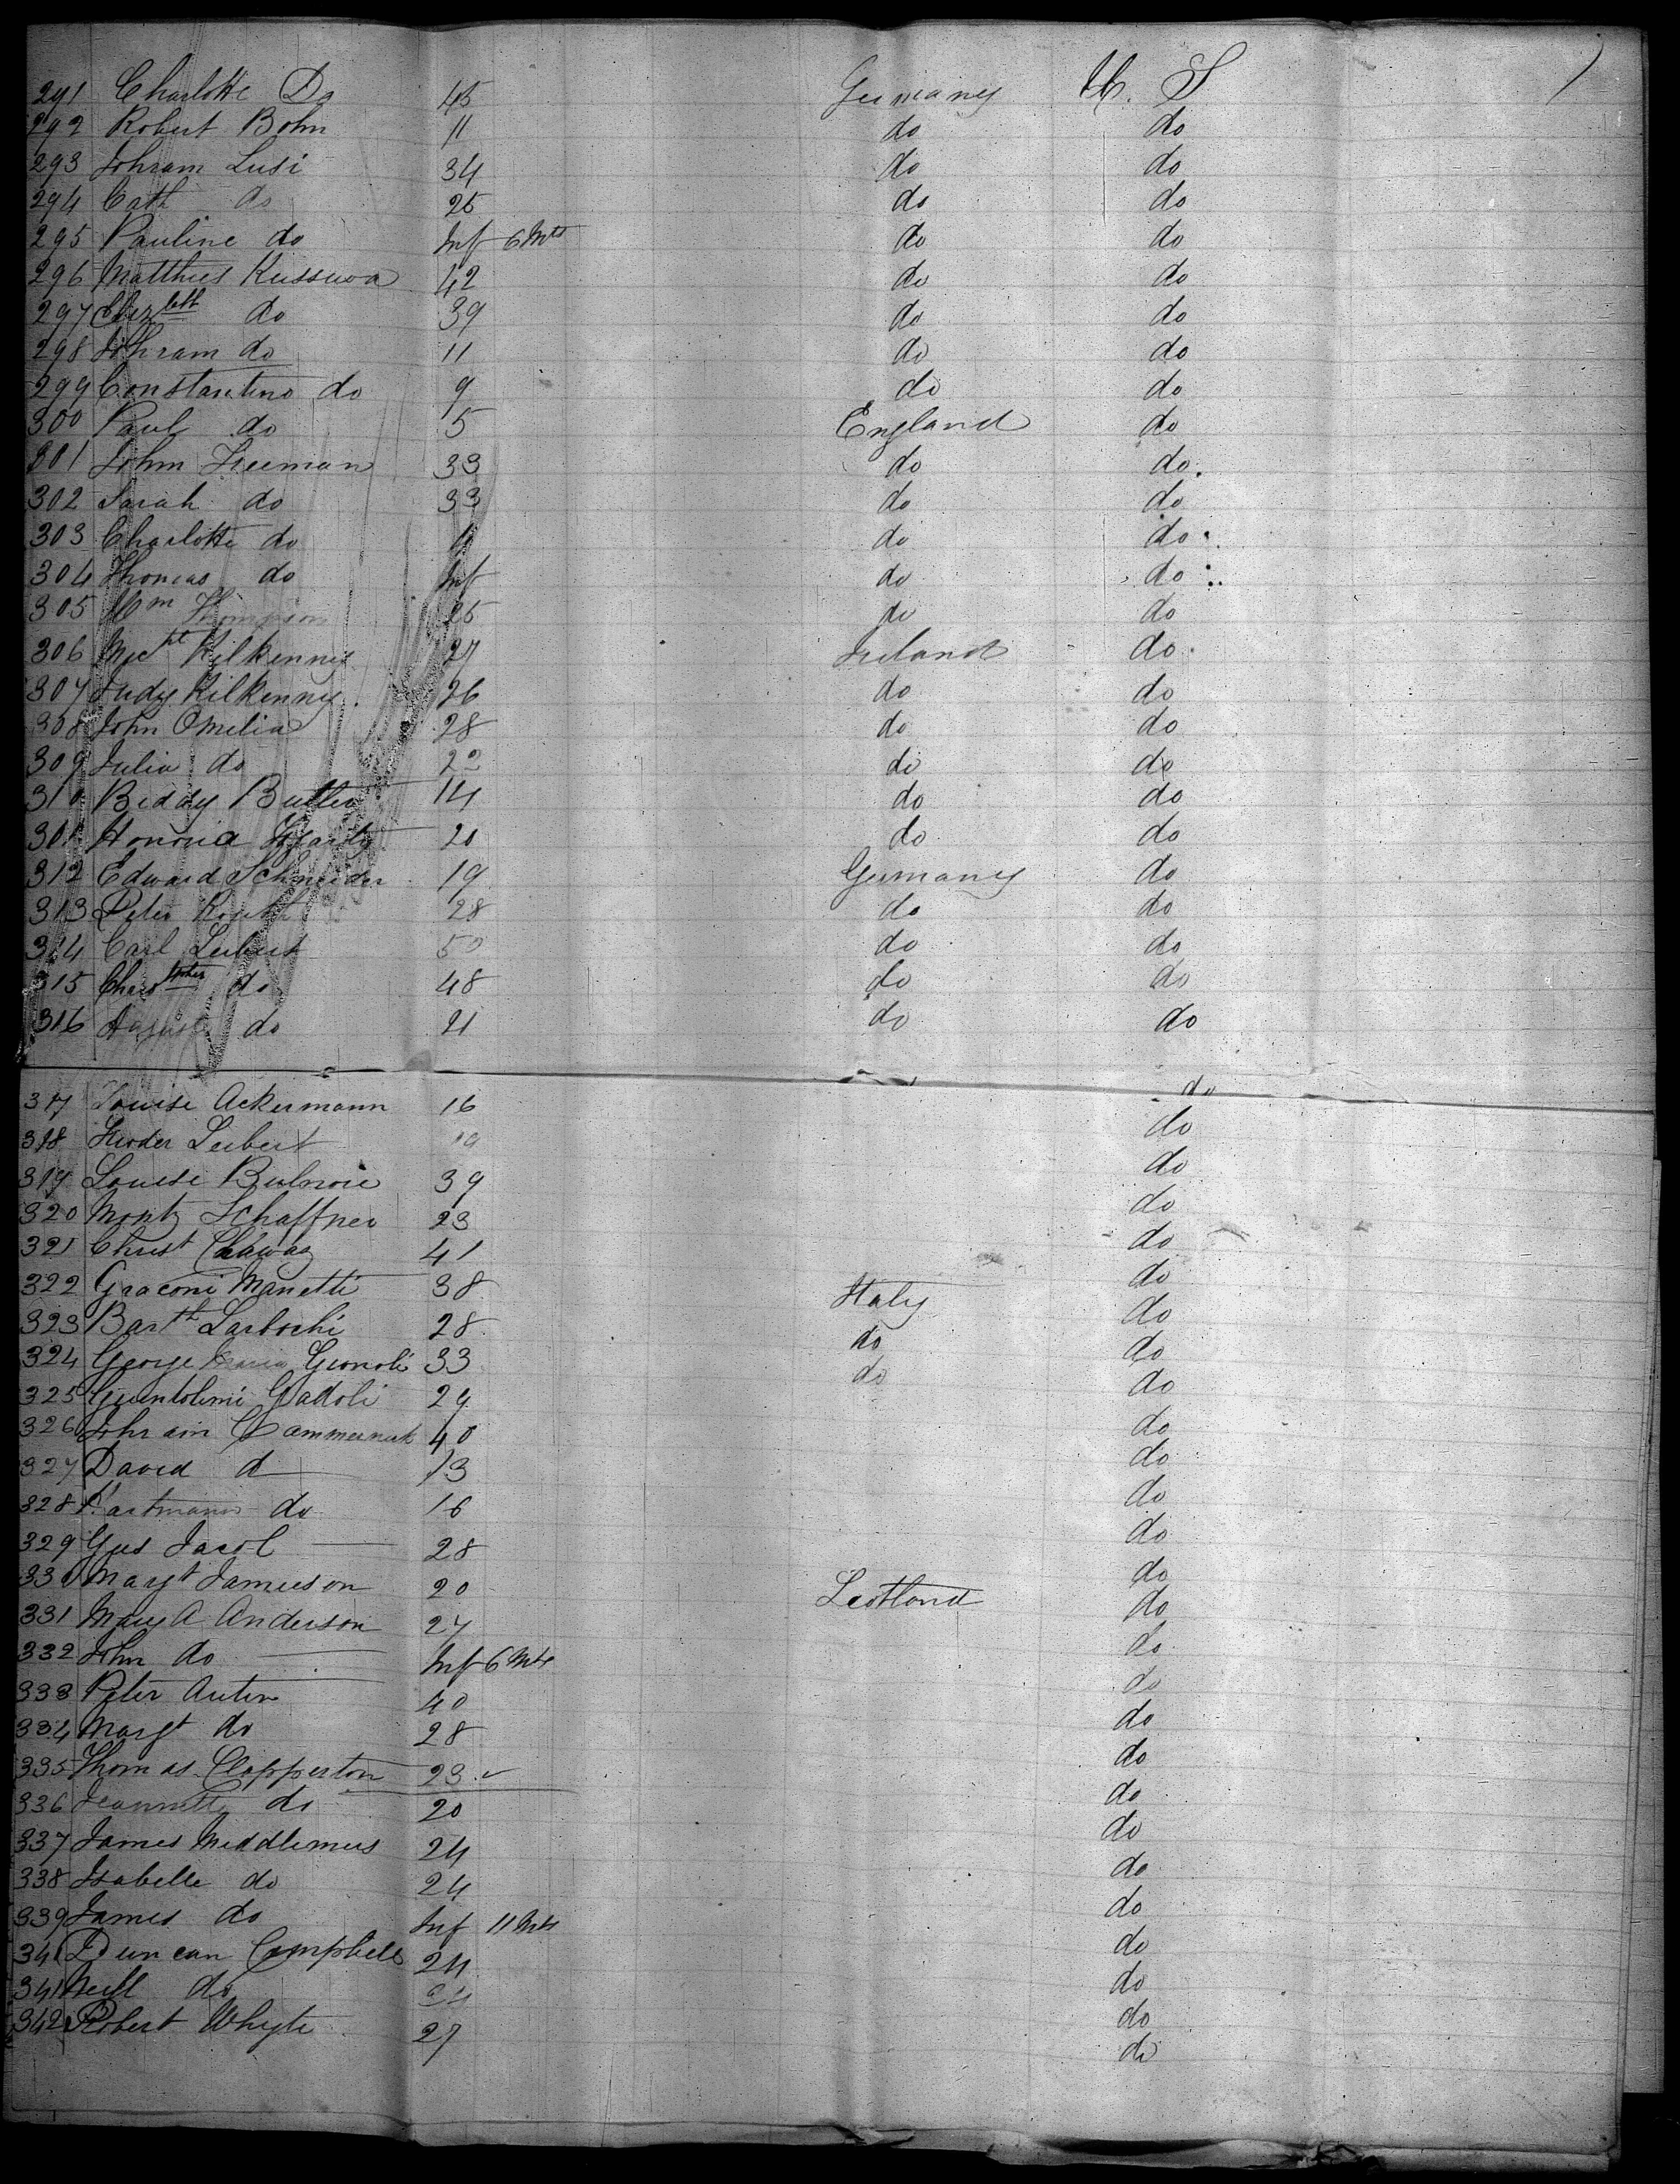 291 Charlotte Do 45 Germany U. S
292 Robert Bohn 11 do do
293 Johram Lusi 34 do do
294 Cath do 25 do do
295 Pauline do Inf 6 Mts do do
296 Matthies Kussuwa 42 do do
297 Elizbth do 39 do do
298 Johram do 11 do do
299 Constantine do 9 do do
300 Paul do 5 England do
301 John Freeman 33 do do.
302 Sarah do 33 do do
303 Charlotte do do do
304 Thomas do Inf do do
305 Wm Thompson 25 do do
306 Mich Kilkenny 27 Ireland do
307 Judy Kilkenny. 26 do do
308 John Omelia 28 do do
309 Julia do 22 do do
310 Biddy Butler 14 do do
301 Honoria 20 do do
312 Edward Schneider 19 Germany do
313 Peter 28 do do
314 Carl Leibert 50 do do
315 do 48 do do
316 August do 21 do do
do
317 Louise Ackermann 16 do
318 Leibert do
319 Louise Bulnoie 39 do
320 Montz Schaffner 23 do
321 Christ 41 do
322 Graconi Manetti 38 Italy do
323 Barth Larbochi 28 do do
324 George Maria Gronoli 33 do do
325 Guintolimi Gadoli 29 do
326 Johrain Cammernick 40 do
327 David d 13 do
328 Hartmann do 16 do
329 Gus Jacol 28 do
330 Margt Jamieson 20 Scotland do
331 Mary A Anderson 27 do
332 John do Inf 6 Mts do
333 Peter Auten 40 do
334 Margt do 28 do
335 Thomas Clapperton 23 do
336 Jeannette do 20 do
337 James Middlemus 24 do
338 Isabelle do 24 do
339 James do Inf 11 Mts do
341 Duncan Campbell 24 do
341 Neill do 24 do
342 Robert Whyte 27 do